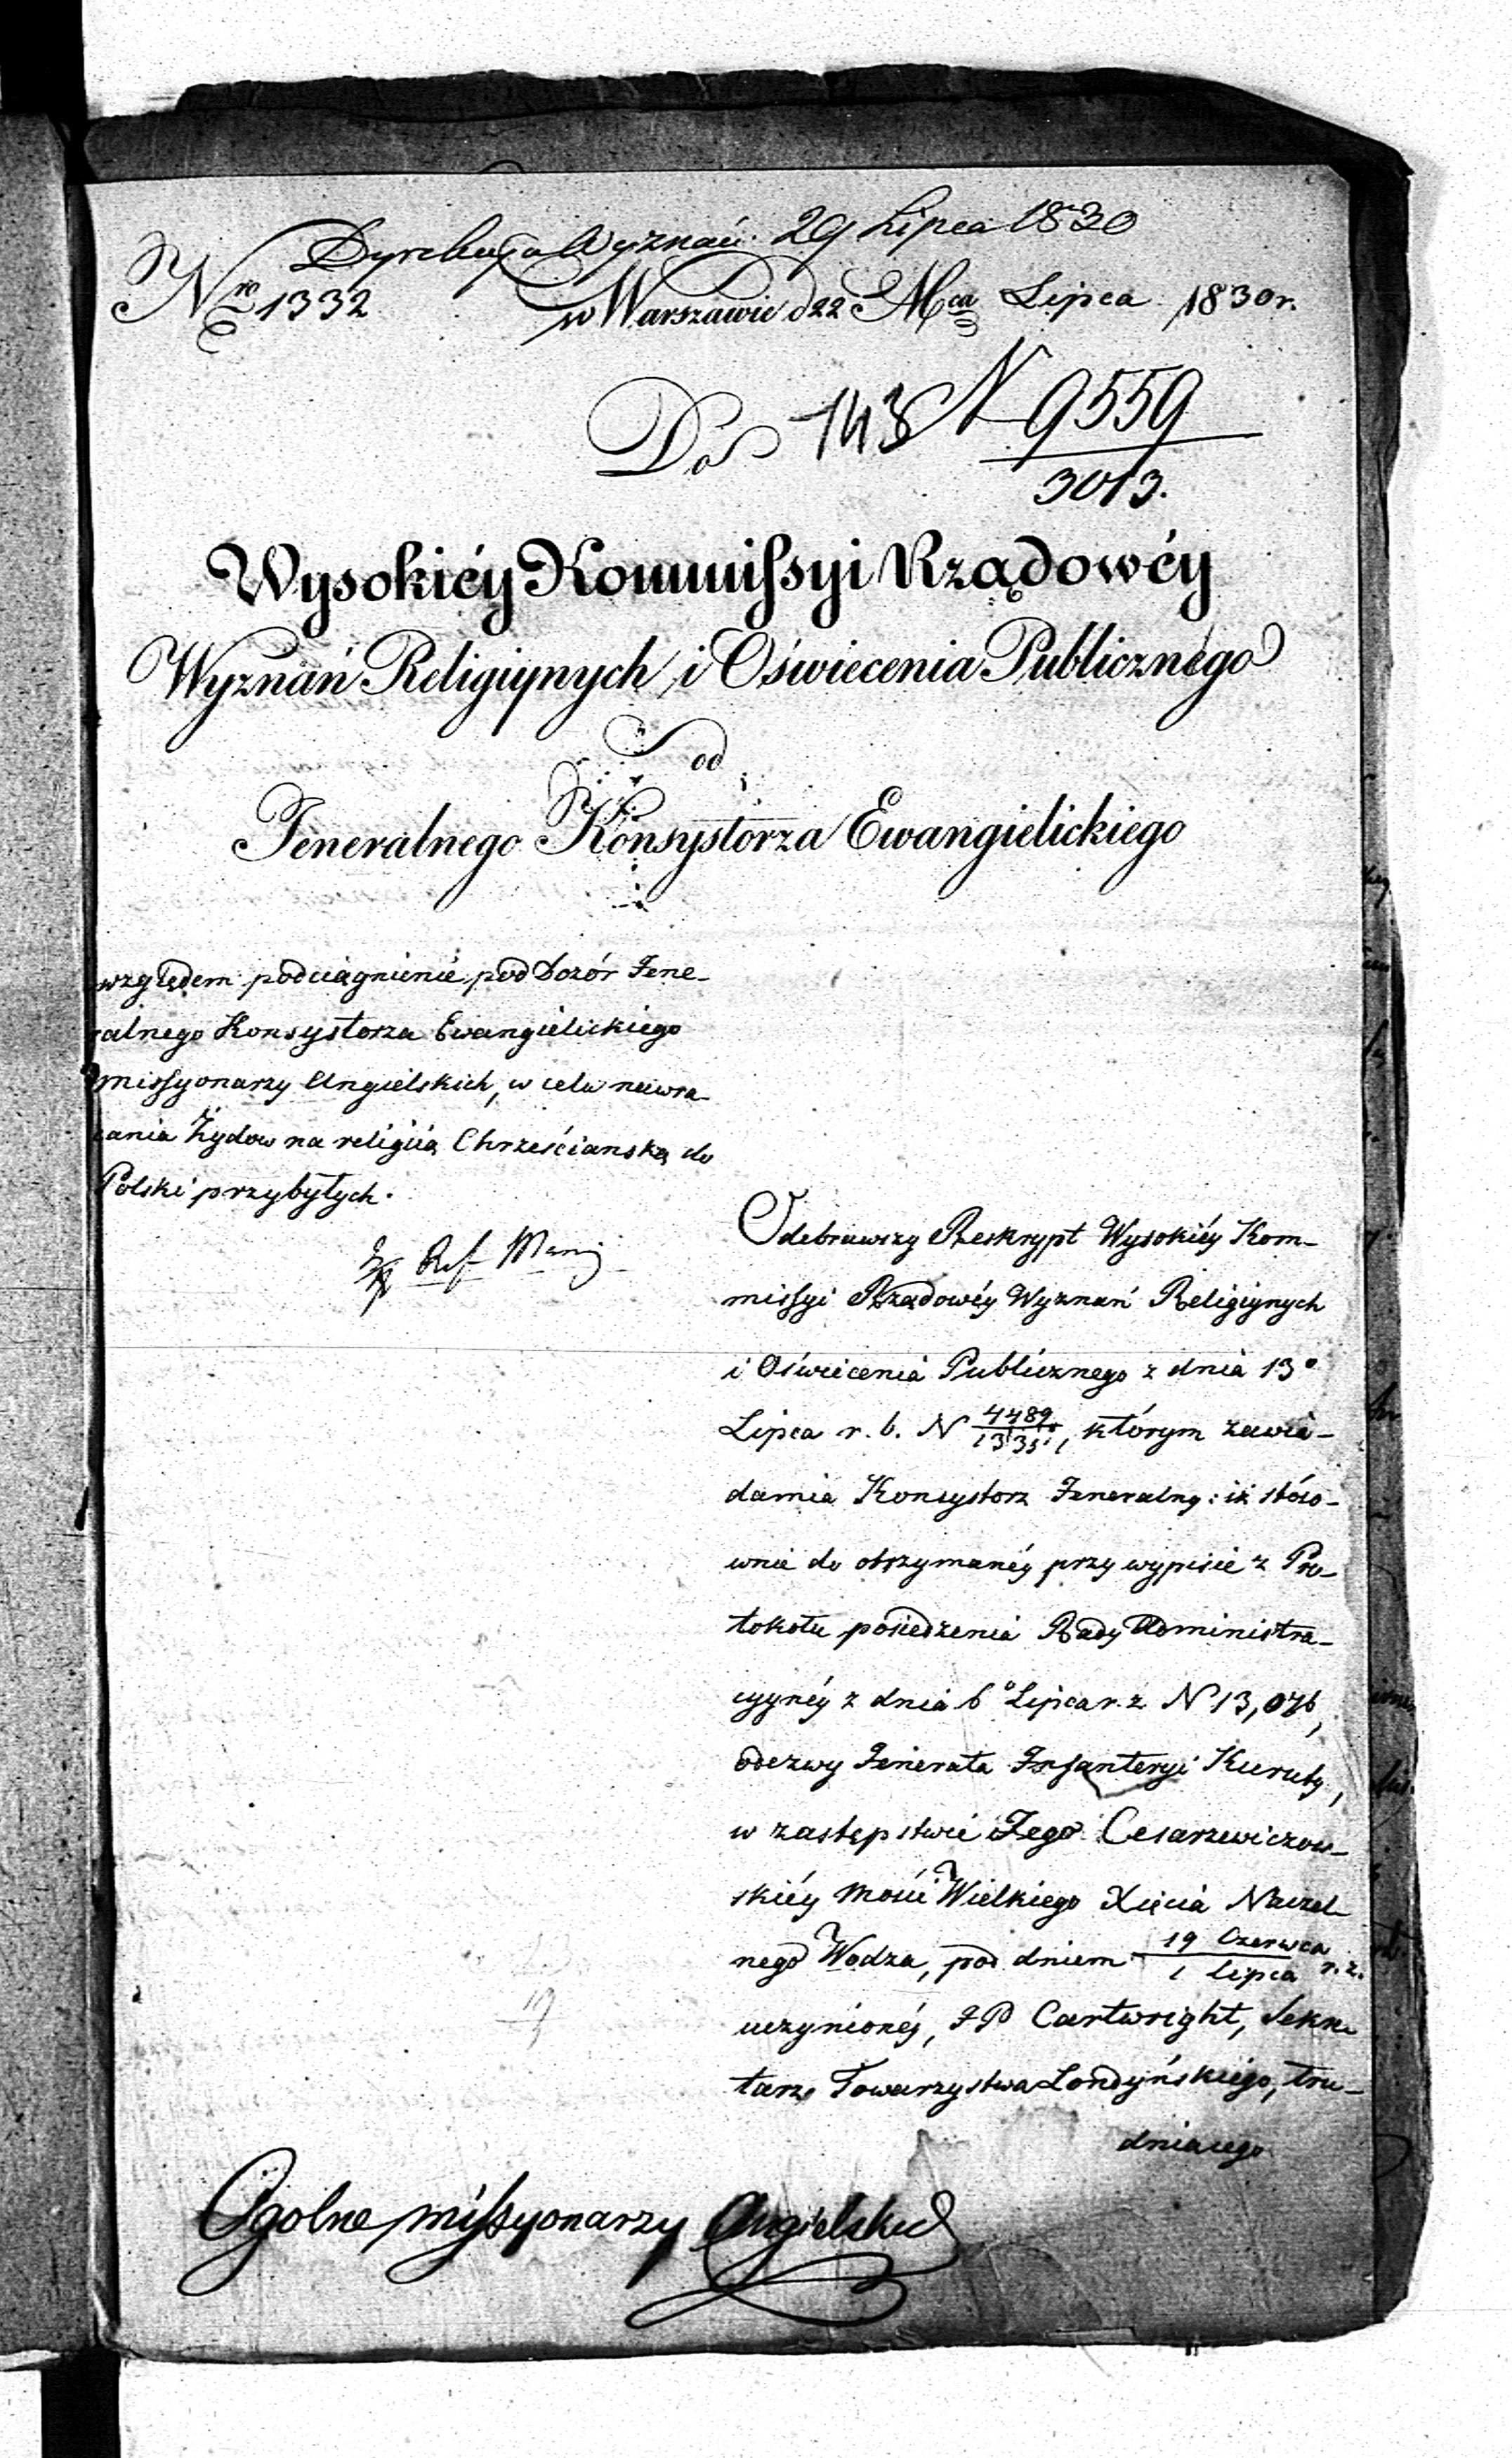 Dyrekcyja Wyznań. 29 Lipca 1830
Nro 1332 w Warszawie d 22 Mca Lipca 1830 r.
Do 143 N 9559
3013.
Wysokiéy Kommissyi Rządowéy
Wyznań Religiynych i Oświecenia Publicznégo
od
Jeneralnego Konsystorza Ewangielickiego
względem podciągnienie pod Dozór Jene-
ralnego Konsystorza Ewangielickiego
missyonarzy Angielskich, w celu nawra-
cania Żydow na religiią Chrześcianską do
Polski przybyłych.
Ref
Odebrawszy Reskrypt Wysokiéy Kom-
missyi Rządowéy Wyznań Religiynych
i Oświecenia Publicznego z dnia 13o
Lipca r. b. N 4489/13351, którym zawia-
damia Konsystorz Jeneralny: iż stóso-
wnie do otrzymanéy przy wypisie z Pro-
tokołu posiedzenia Rady Administra-
cyynéy z dnia 6o Lipca r. z. N 13,076,
odezwy Jenerała Infanteryi Kuruty,
w zastępstwie Jego Cesarzewiczow-
skiéy Mości Wielkiego Xięcia Naczel-
nego Wodza, pod dniem 19 Czerwca/1 Lipca r. z.
uczynionéy, JP Cartwright, Sekre-
tarz Towarzystwa Londyńskiego, tru-
dniącego
Ogolne missyonarzy Angielskich